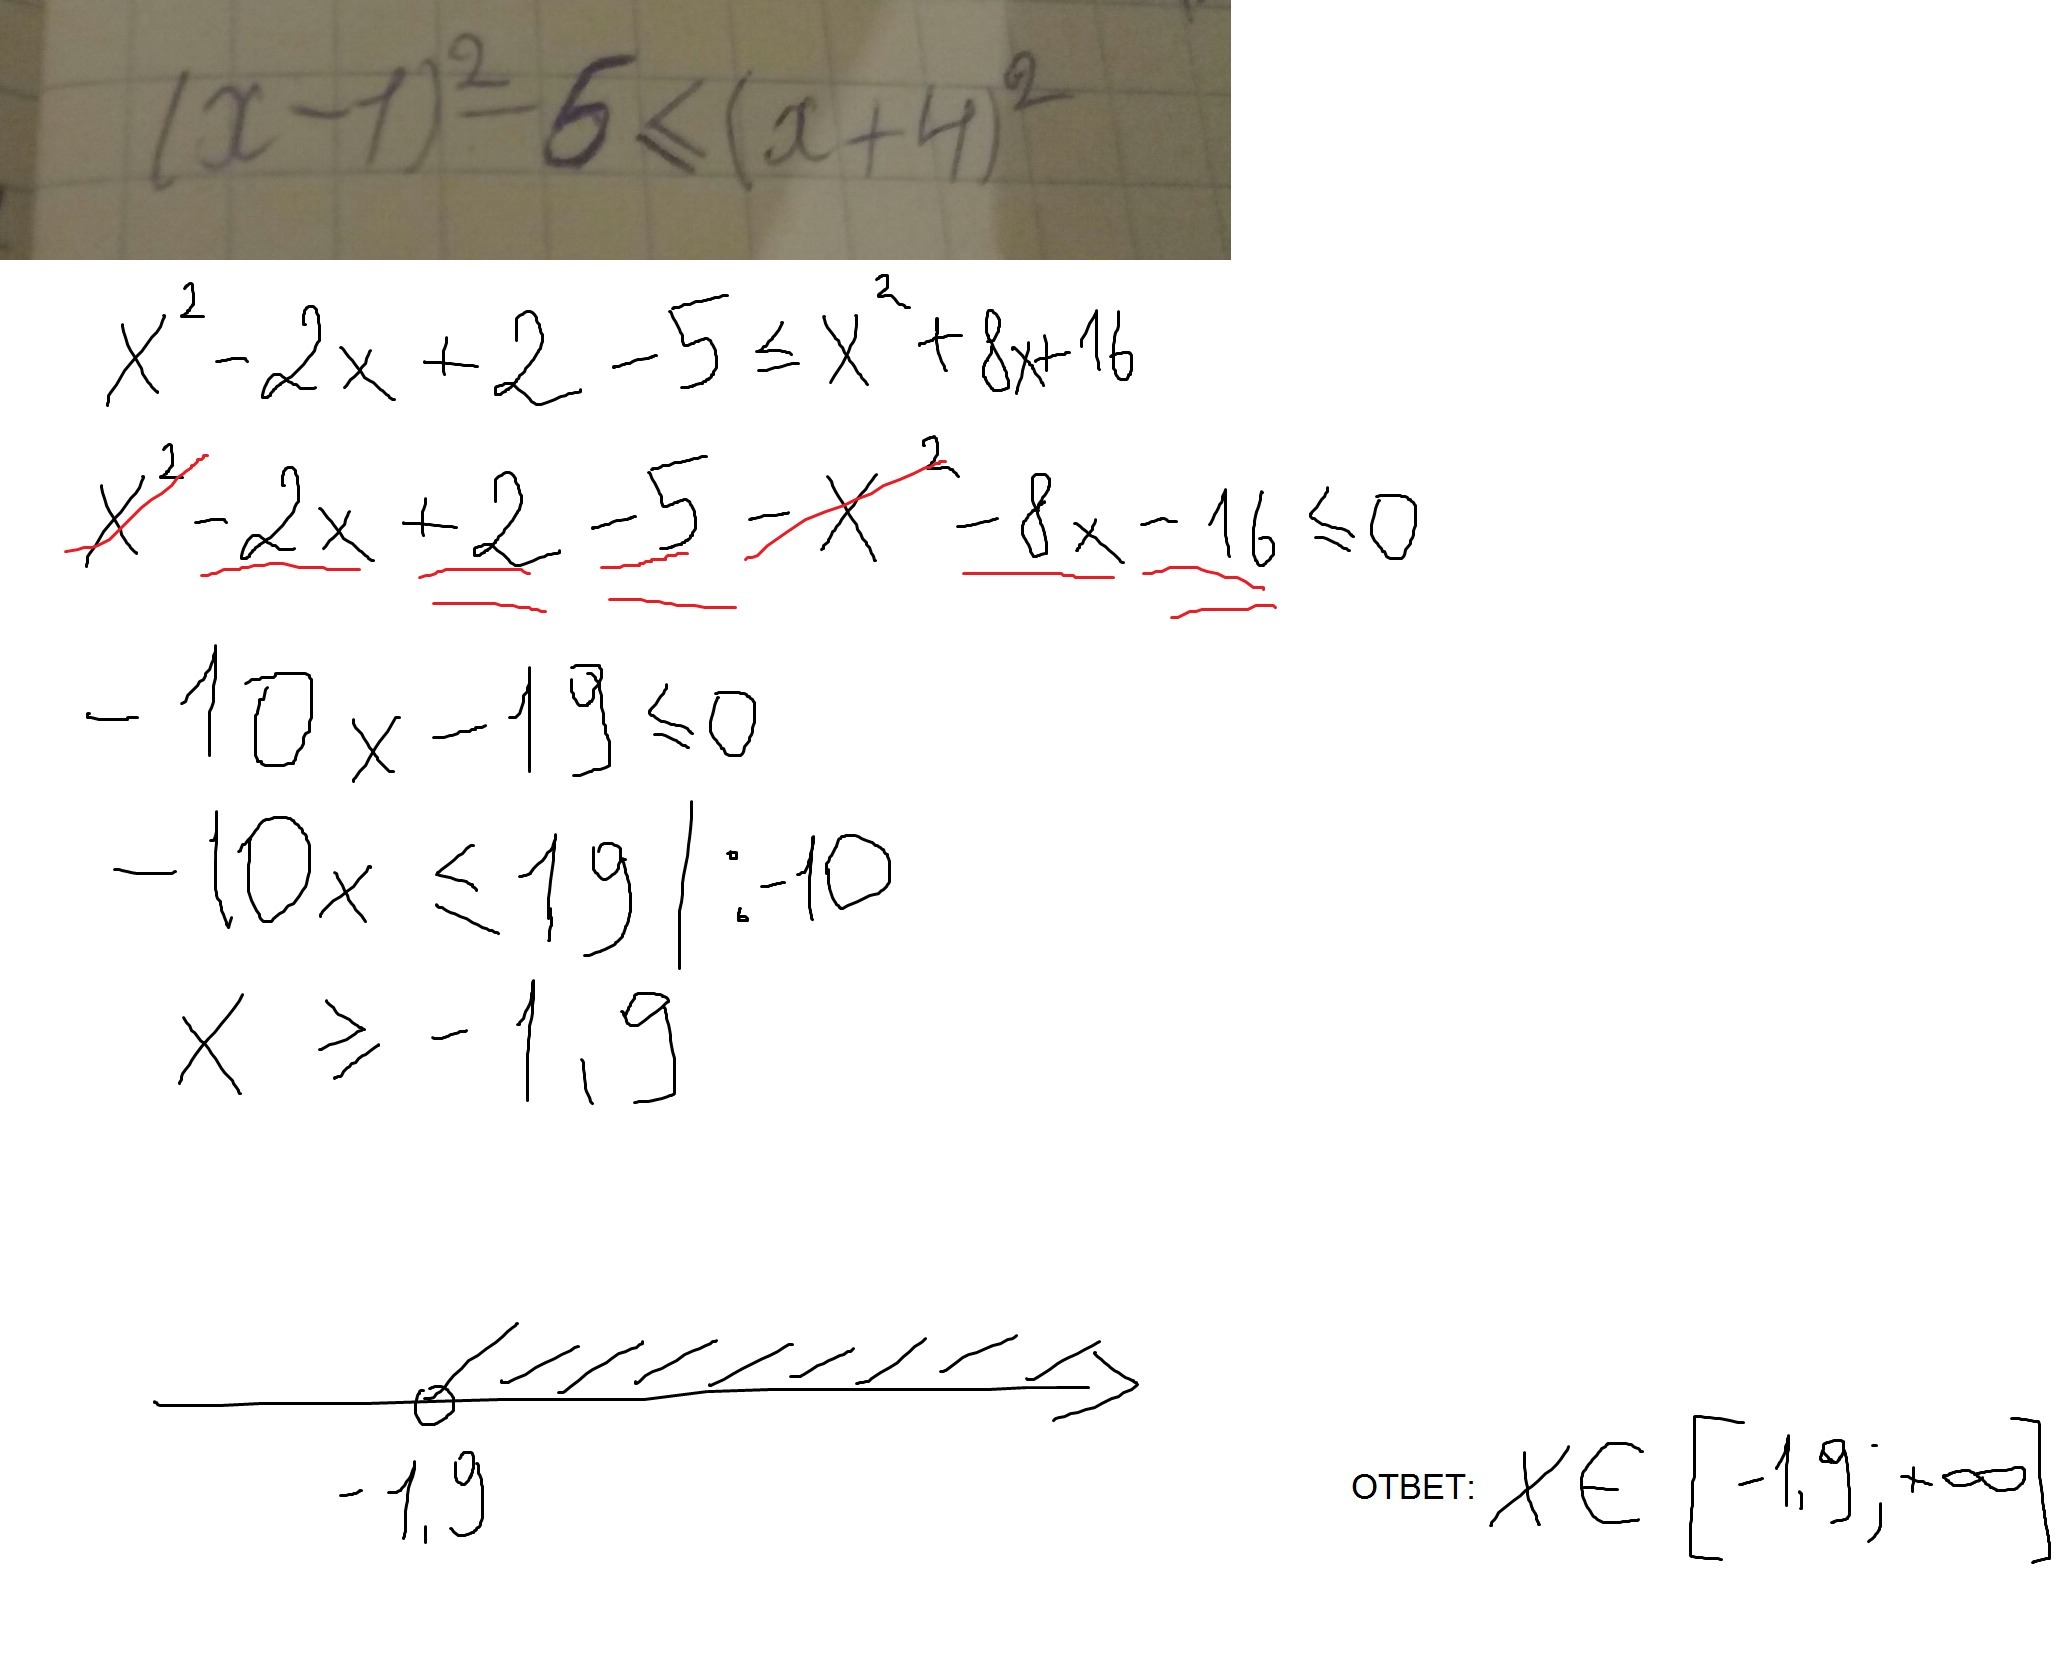 (x-1)² - 5 ≤ (x+4)²
x² - 2x + 2 - 5 ≤ x² + 8x + 16
x² - 2x + 2 - 5 - x² - 8x - 16 ≤ 0
- 10x - 19 ≤ 0
- 10x ≤ 19 | : -10
x ≥ - 1,9
-1,9
ОТВЕТ: X ∈ [-1,9; +∞]